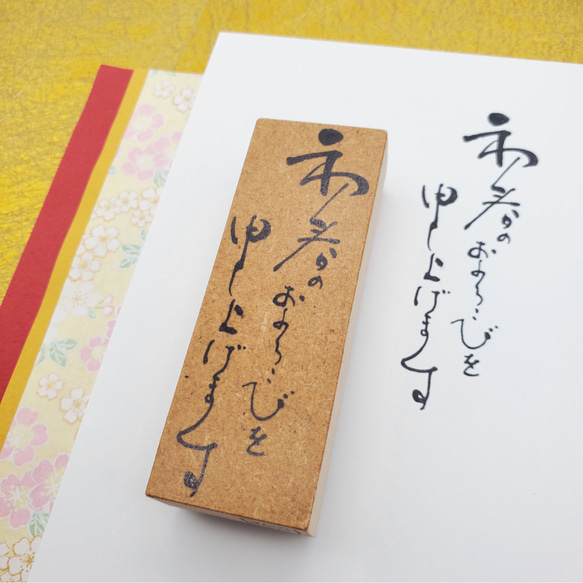 初春のおよろこびを
申し上げます
初春のおよろこびを
申し上げます